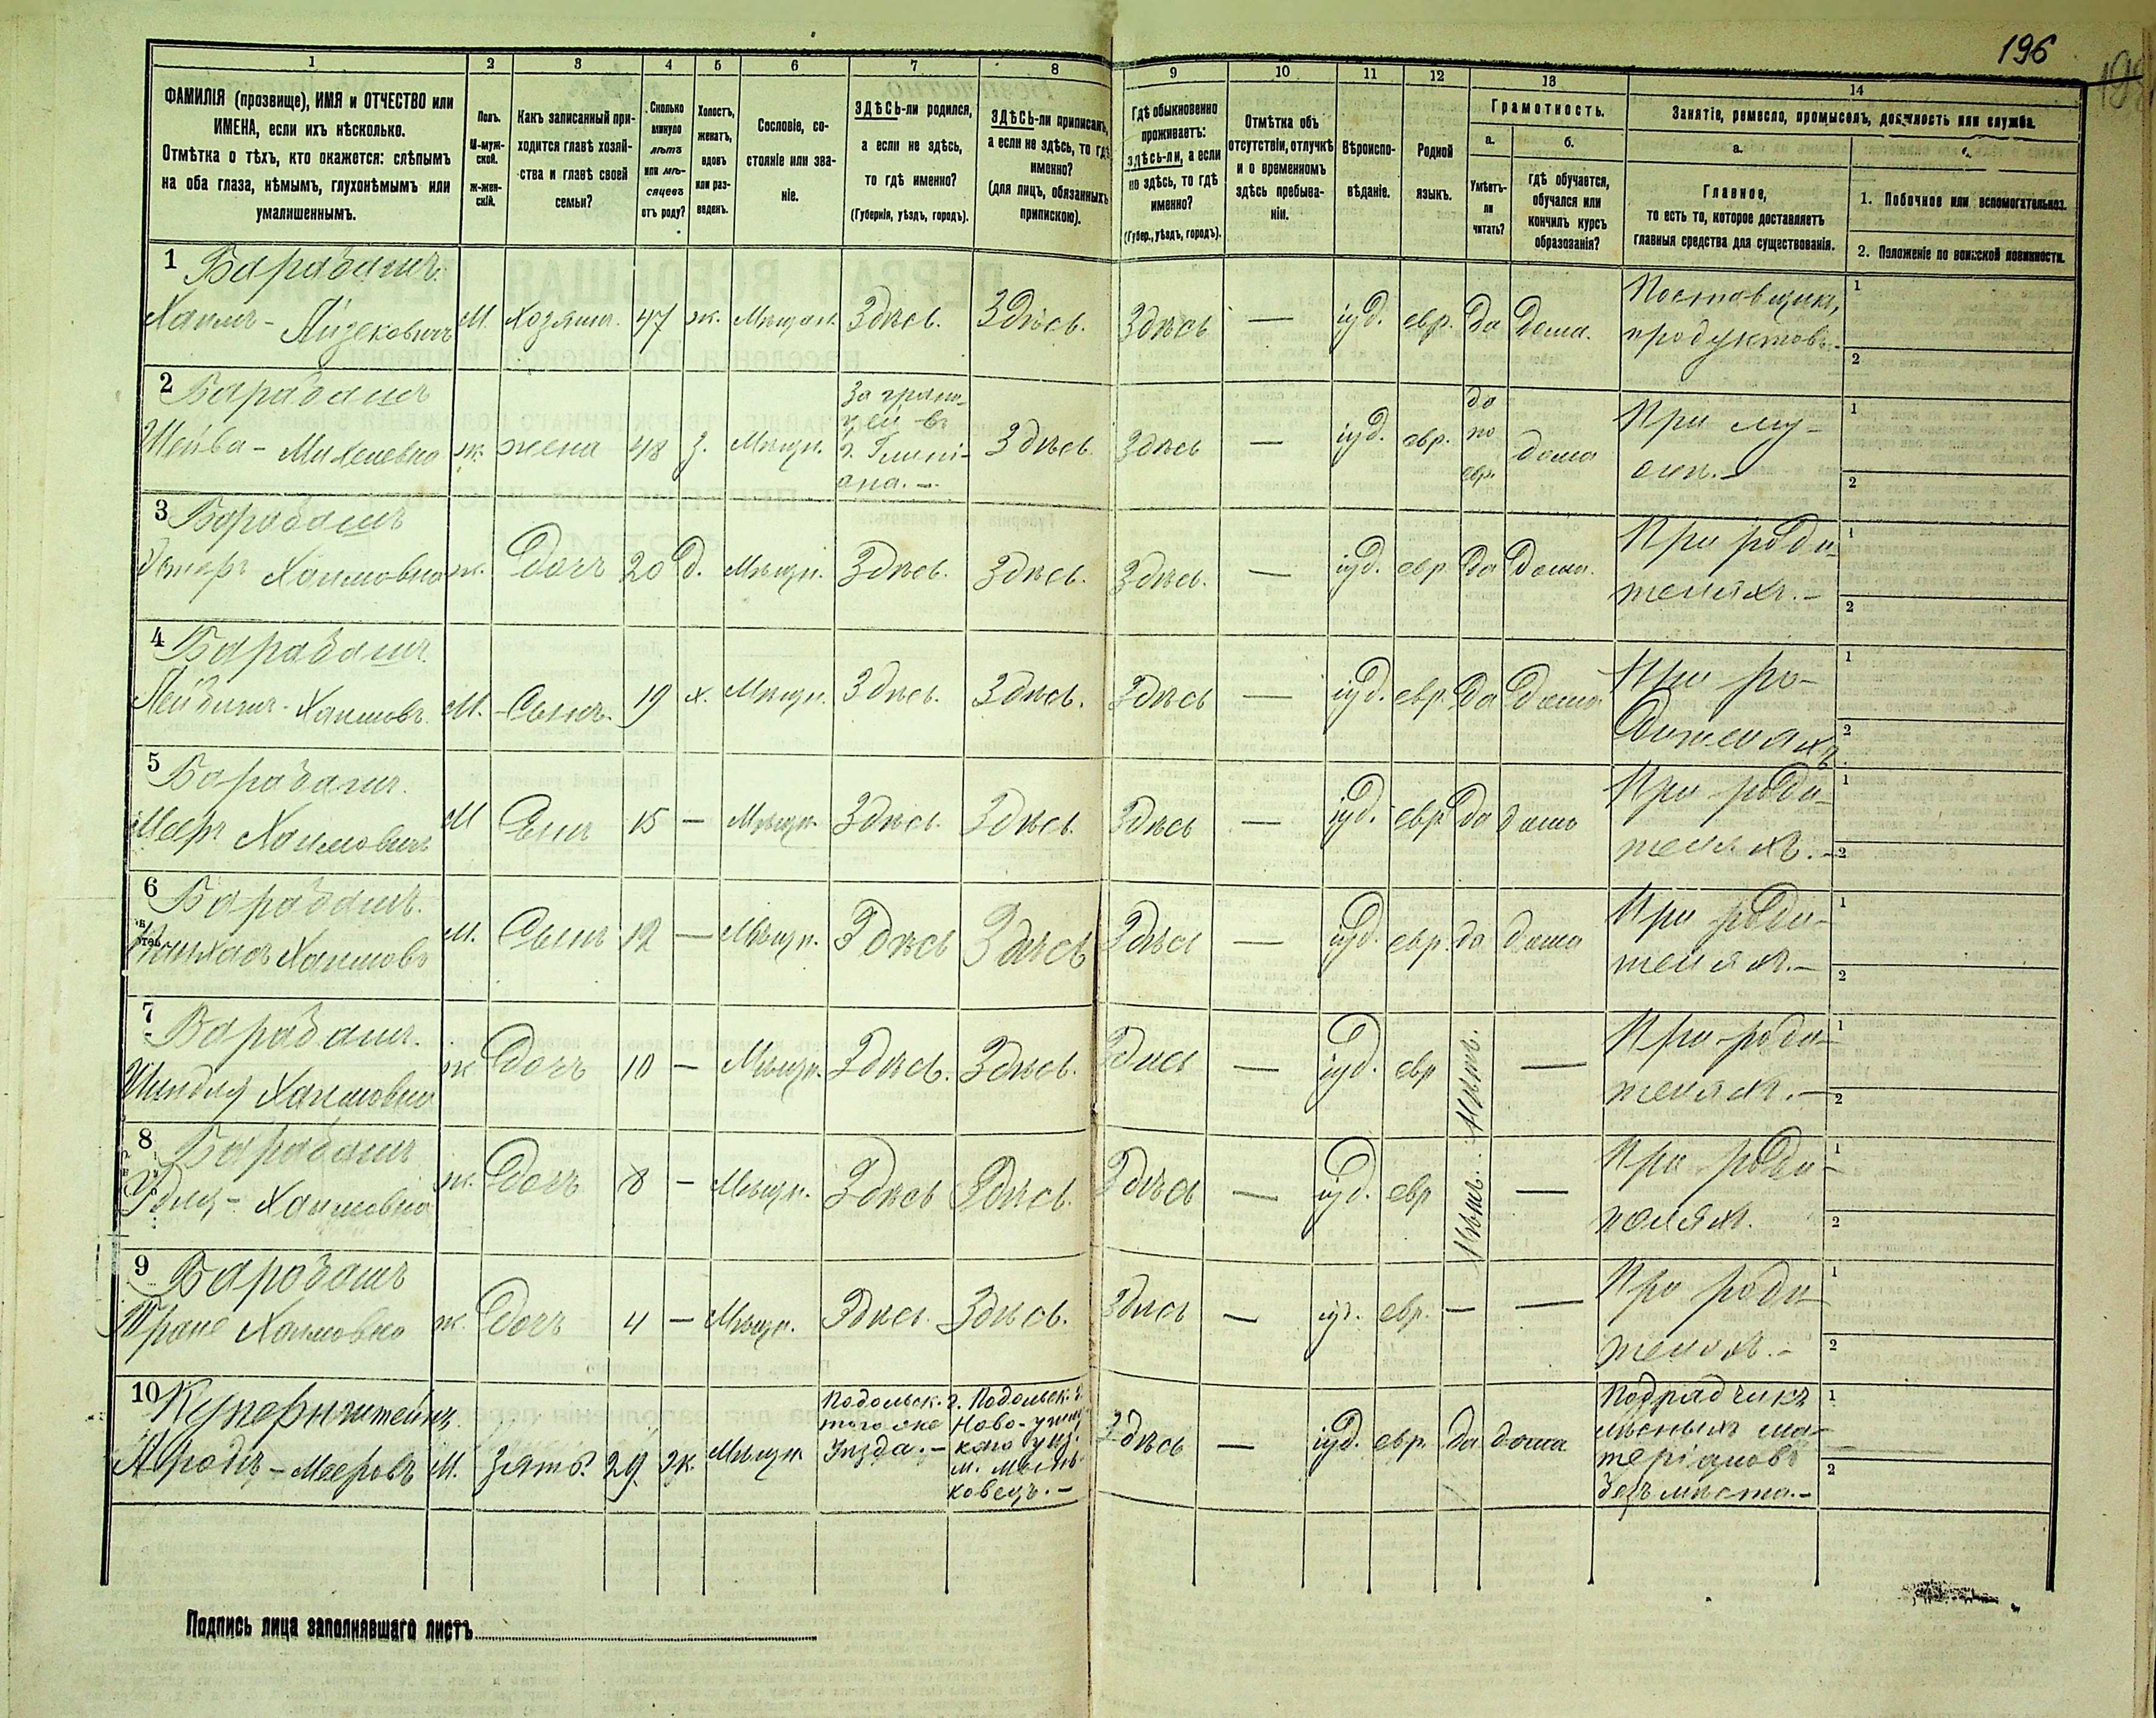 196
198
1 2 3 4 5 6 7 8 9 10 11 12 13 14
ФАМИЛІЯ (прозвище), ИМЯ и ОТЧЕСТВО или
ИМЕНА, если ихъ нѣсколько.
Отмѣтка о тѣхъ, кто окажется: слѣпымъ
на оба глаза, нѣмымъ, глухонѣмымъ или
умалишеннымъ.
Полъ.
М-муж-
ской.
ж-жен-
скій.
Какъ записанный при-
ходится главѣ хозяй-
ства и главѣ своей
семьи?
Сколько
минуло
лѣтъ
или мѣ-
сяцевъ
отъ роду?
Холостъ,
женатъ,
вдовъ
или раз-
веденъ.
Сословіе, со-
стояніе или зва-
ніе.
ЗДѢСЬ-ли родился,
а если не здѣсь,
то гдѣ именно?
(Губернія, уѣздъ, городъ).
ЗДѢСЬ-ли приписанъ,
а если не здѣсь, то гдѣ
именно?
(для лицъ, обязанныхъ
припискою).
Гдѣ обыкновенно
проживаетъ:
здѣсь-ли, а если
не здѣсь, то гдѣ
именно?
(Губер., уѣздъ, городъ).
Отмѣтка объ
отсутствіи, отлучкѣ
и о временномъ
здѣсь пребыва-
ніи.
Вѣроиспо-
вѣданіе.
Родной
языкъ.
Грамотность.
а.
Умѣетъ-
ли
читать?
б.
гдѣ обучается,
обучался или
кончилъ курсъ
образованія?
Занятіе, ремесло, промыселъ, должность или служба.
а.
Главное,
то есть то, которое доставляетъ
главныя средства для существованія.
1. Побочное или вспомогательное.
2. Положеніе по воинской повинности.
1 Барабашъ
Хаимъ - Айзековичъ М. Хозяинъ. 47 ж. Мѣщан. Здѣсь. Здѣсь. Здѣсь — іуд. евр. да дома. Поставщикъ
продуктовъ. 1 2
2 Барабашъ
Шейва - Михелевна ж. жена 48 з. Мѣщн. За грани-
цей въ
Здѣсь Здѣсь — іуд. евр. да
по
евр. дома При му-
жѣ. - 1 2
3 Барабашъ
Эстеръ Хаимовна ж. дочь 20 д. Мѣщн. Здѣсь. Здѣсь. Здѣсь. — іуд. евр да дома. При роди-
теляхъ. - 1 2
4 Барабашъ.
Лейбишъ - Хаимовъ. М. Сынъ. 19 х. Мѣщн. Здѣсь. Здѣсь. Здѣсь — іуд. евр. да дома При ро-
дителяхъ 1 2
5 Барабашъ.
Мееръ Хаимовичъ М Сынъ 15 — Мѣщн. Здѣсь. Здѣсь. Здѣсь — іуд. евр да дома При роди-
теляхъ. - 1 2
6 Барабашъ.
Хаимовъ М. Сынъ 12 — Мѣщн. Здѣсь Здѣсь Здѣсь — іуд. евр. да дома При роди-
теляхъ. - 1 2
7 Барабашъ.
Шиндля Хаимовна ж дочь 10 — Мѣщн. Здѣсь. Здѣсь. Здѣсь — іуд. евр нѣтъ. — При роди-
теляхъ. - 1 2
8 Барабашъ
Хаимовна ж. дочь 8 — Мѣщн. Здѣсь Здѣсь. Здѣсь — іуд. евр нѣтъ. — При роди-
теляхъ. 1 2
9 Барабашъ
Хаимовна ж. дочь 4 — Мѣщн. Здѣсь. Здѣсь. Здѣсь — іуд. евр. — — При роди-
теляхъ. - 1 2
10 Купернштейнъ
Аронъ - Мееровъ М. Зять. 29 ж. Мѣщн Подольск. г.
того же
уѣзда. - Подольск. г.
Ново-ушиц-
каго уѣз.
м. Миньковецъ. -
Здѣсь — іуд. евр. да дома Подрядчикъ
лѣсныхъ ма-
теріаловъ
безъ мѣста. - 1 2
Подпись лица заполнявшаго листъ